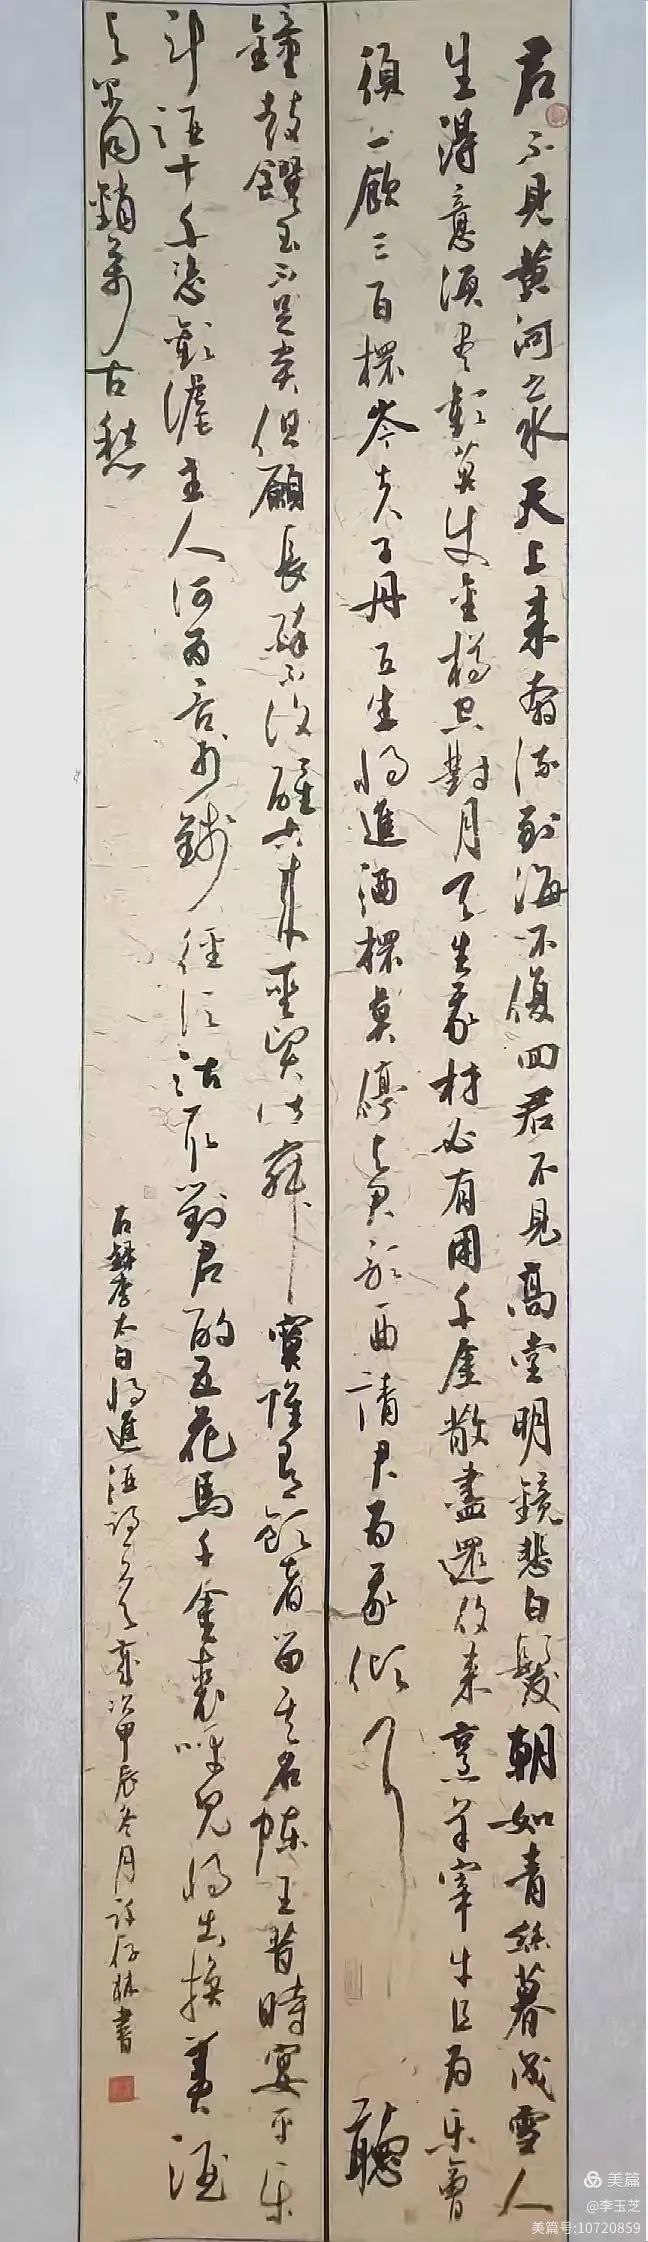 君不见黄河之水天上来奔流到海不復回君不見高堂明鏡悲白髮朝如青絲暮成雪人
生得意须尽歡莫使金樽空對月天生我材必有用千金散盡還復来烹羊宰牛且为乐會
須一飲三百杯岑夫子丹丘生将進酒杯莫停与君歌一曲請君为我倾耳聽
鐘鼓饌玉不足贵但願長醉不復醒古来聖贤皆寂寞惟有飲者留其名陳王昔時宴平乐
斗酒十千恣歡謔主人何为言少錢徑须沽取對君酌五花馬千金裘呼兒将出换美酒
与尔同銷万古愁
右録李太白将進酒诗 歲次甲辰冬月 書
美篇
@李玉芝
美篇号:10720859